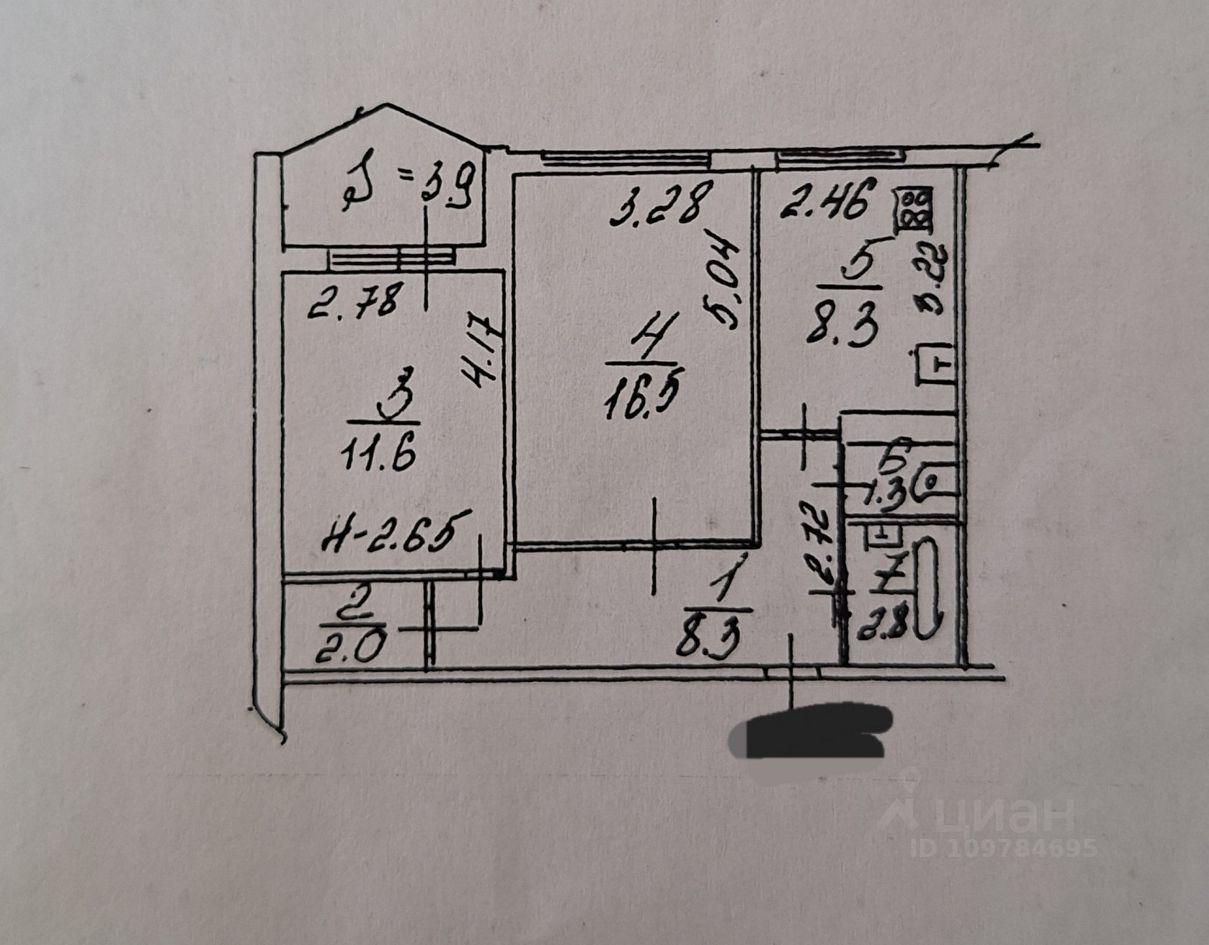 S = 3.9
3.28
2.46
5
8.3
3.22
5.04
2.78
4.17
4
16.5
3
11.6
H-2.65
6
1.3
2.72
1
8.3
7
2.8
2
2.0
циан
ID 109784695